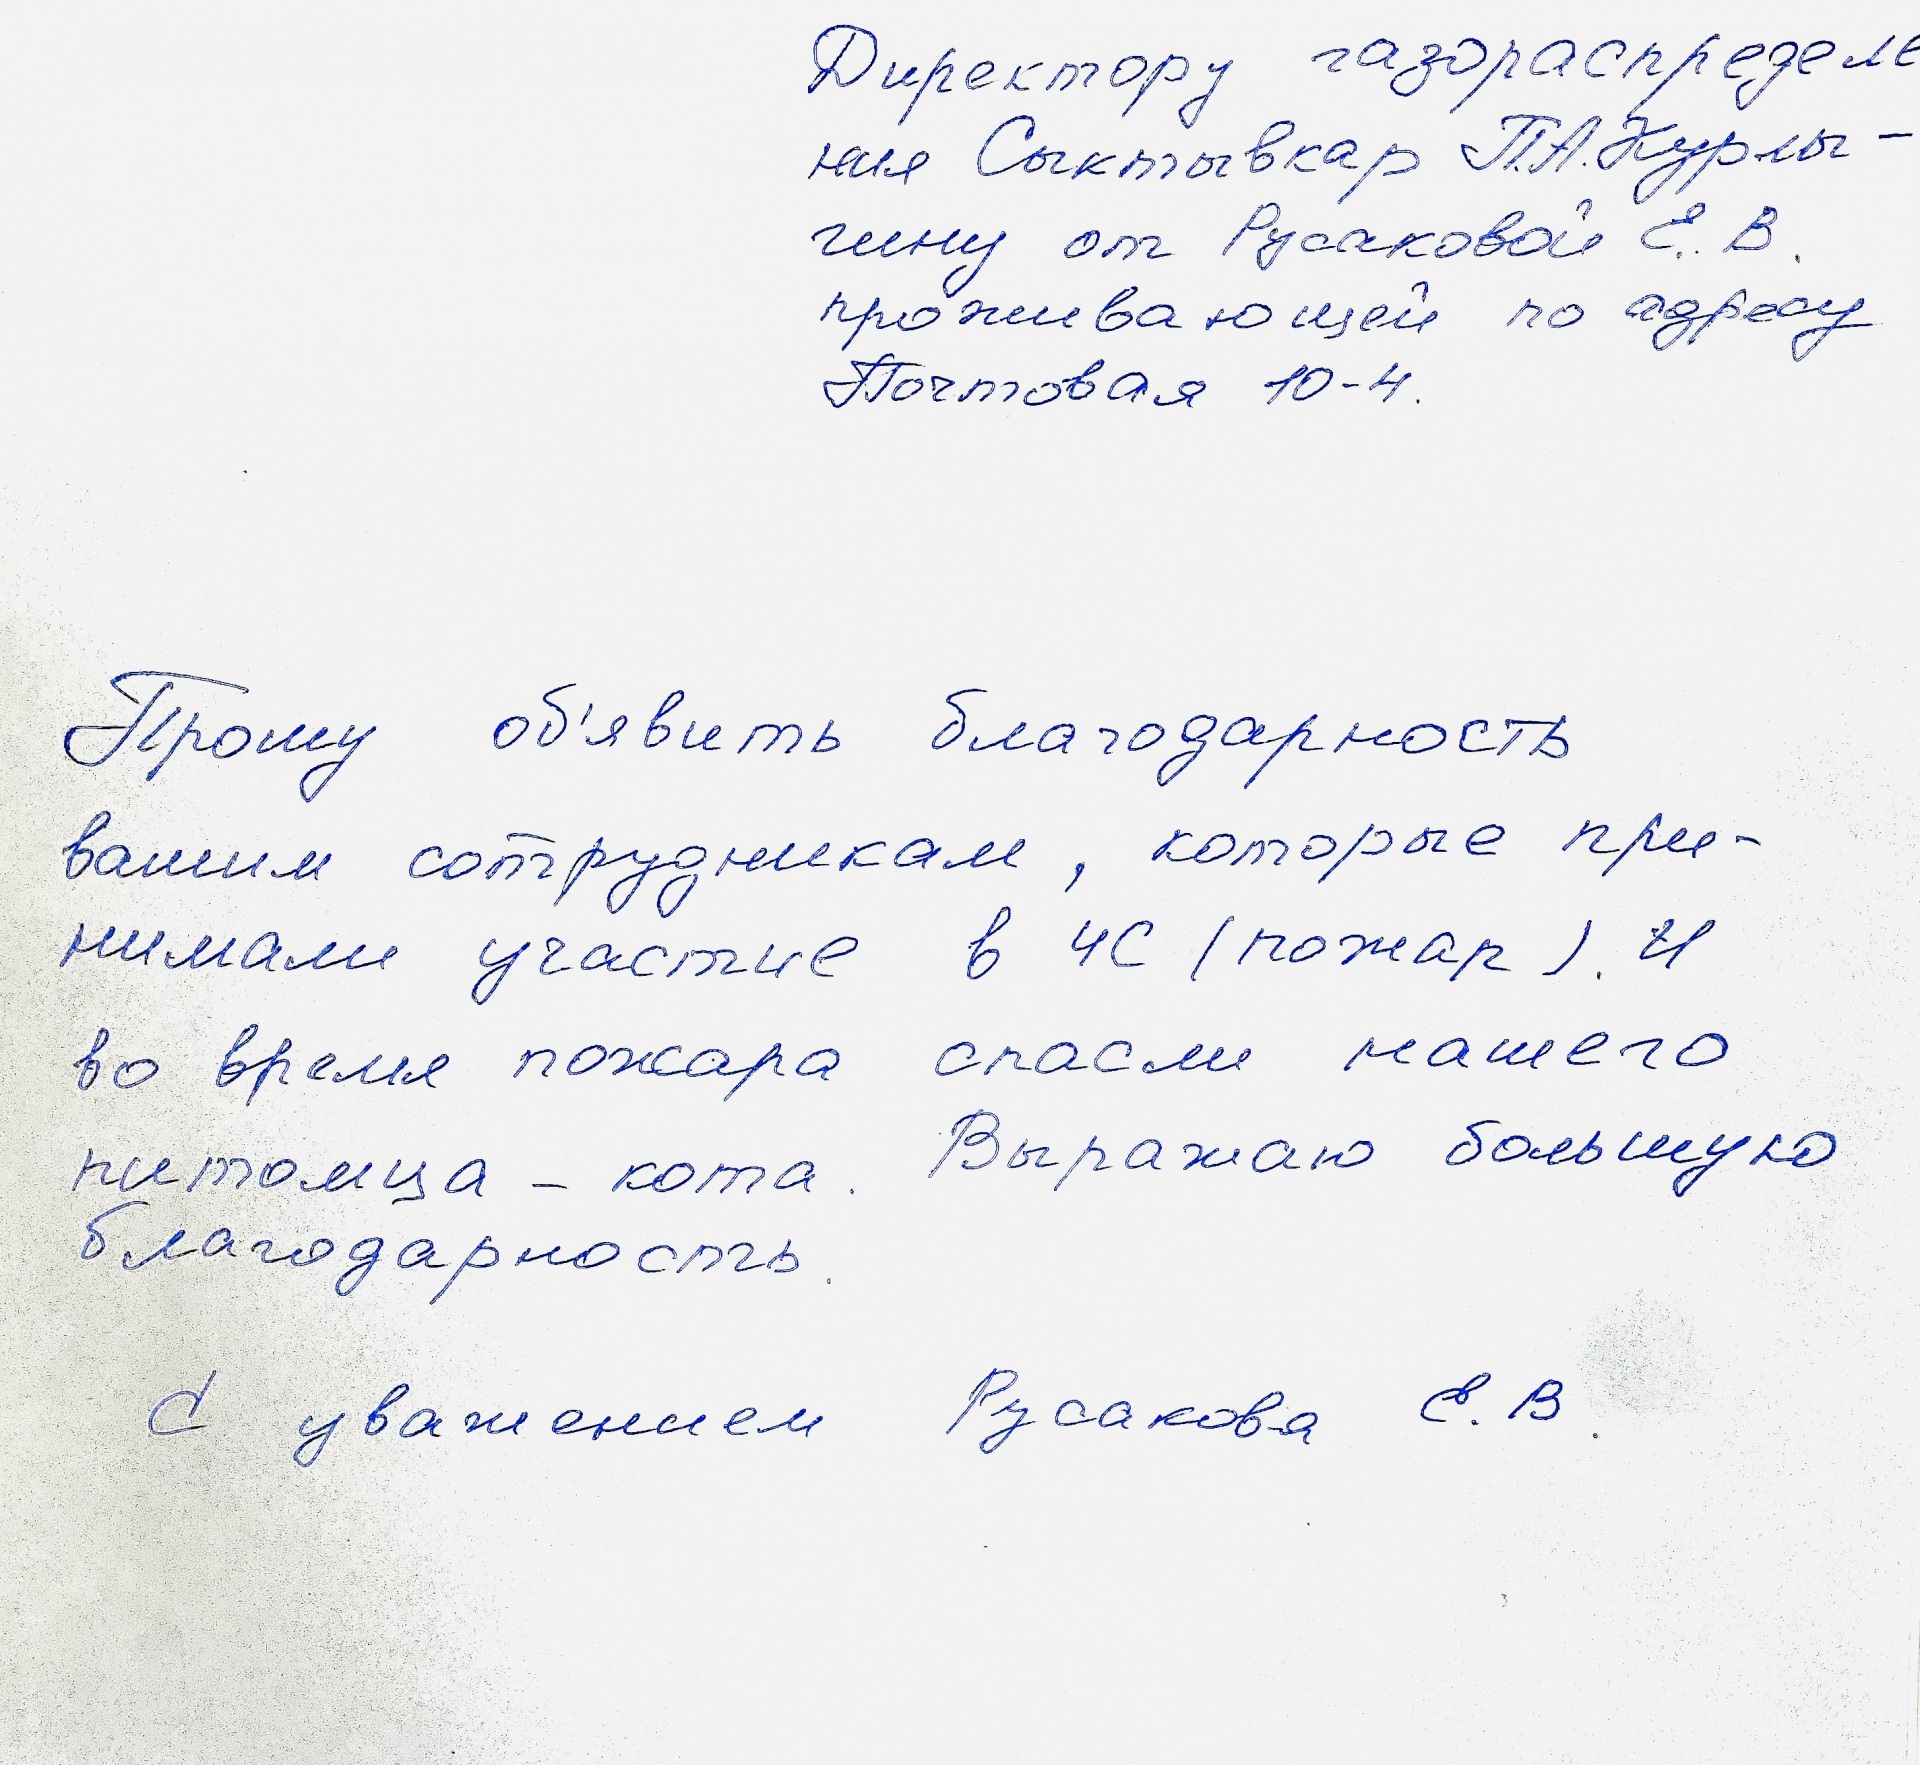 Директору газораспределе
ния Сыктывкар П.А. Курлы-
гину от Русаковой Е. В.
проживающей по адресу
Почтовая 10-4.
Прошу об'явить благодарность
вашим сотрудникам, которые при-
нимали участие в ЧС (пожар). И
во время пожара спасли нашего
питомца - кота. Выражаю большую
благодарность.
С уважением Русакова Е. В.